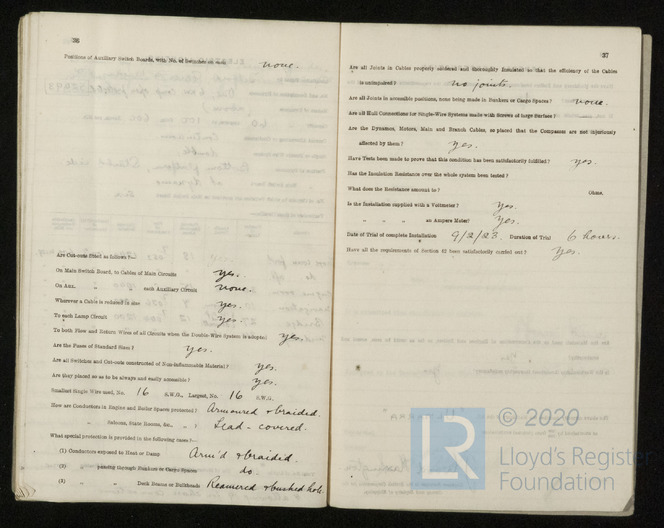 36
Positions of Auxiliary Switch Boards, with No. of Switches on each none.
Are Cut-outs fitted as follows?—
On Main Switch Board, to Cables of Main Circuits yes.
On Aux. " " each Auxiliary Circuit none.
Wherever a Cable is reduced in size yes.
To each Lamp Circuit yes.
To both Flow and Return Wires of all Circuits when the Double-Wire System is adopted yes.
Are the Fuses of Standard Sizes? yes.
Are all Switches and Cut-outs constructed of Non-inflammable Material? yes.
Are they placed so as to be always and easily accessible? yes.
Smallest Single Wire used, No. 16 S.W.G., Largest, No. 16 S.W.G.
How are Conductors in Engine and Boiler Spaces protected? Armoured & braided.
" Saloons, State Rooms, &c., " ? Lead-covered.
What special protection is provided in the following cases?—
(1) Conductors exposed to Heat or Damp Arm'd & braided.
(2) " passing through Bunkers or Cargo Spaces do.
(3) " " Deck Beams or Bulkheads Reamered & bushed hole.
37
Are all Joints in Cables properly soldered and thoroughly insulated so that the efficiency of the Cables
is unimpaired? no joints.
Are all Joints in accessible positions, none being made in Bunkers or Cargo Spaces? none.
Are all Hull Connections for Single-Wire Systems made with Screws of large Surface?
Are the Dynamos, Motors, Main and Branch Cables, so placed that the Compasses are not injuriously
affected by them? yes.
Have Tests been made to prove that this condition has been satisfactorily fulfilled? yes.
Has the Insulation Resistance over the whole system been tested?
What does the Resistance amount to? Ohms.
Is the Installation supplied with a Voltmeter? yes.
" " " an Ampere Meter? yes.
Date of Trial of complete Installation 9/2/23. Duration of Trial 6 hours.
Have all the requirements of Section 42 been satisfactorily carried out? yes.
LR
© 2020
Lloyd's Register
Foundation